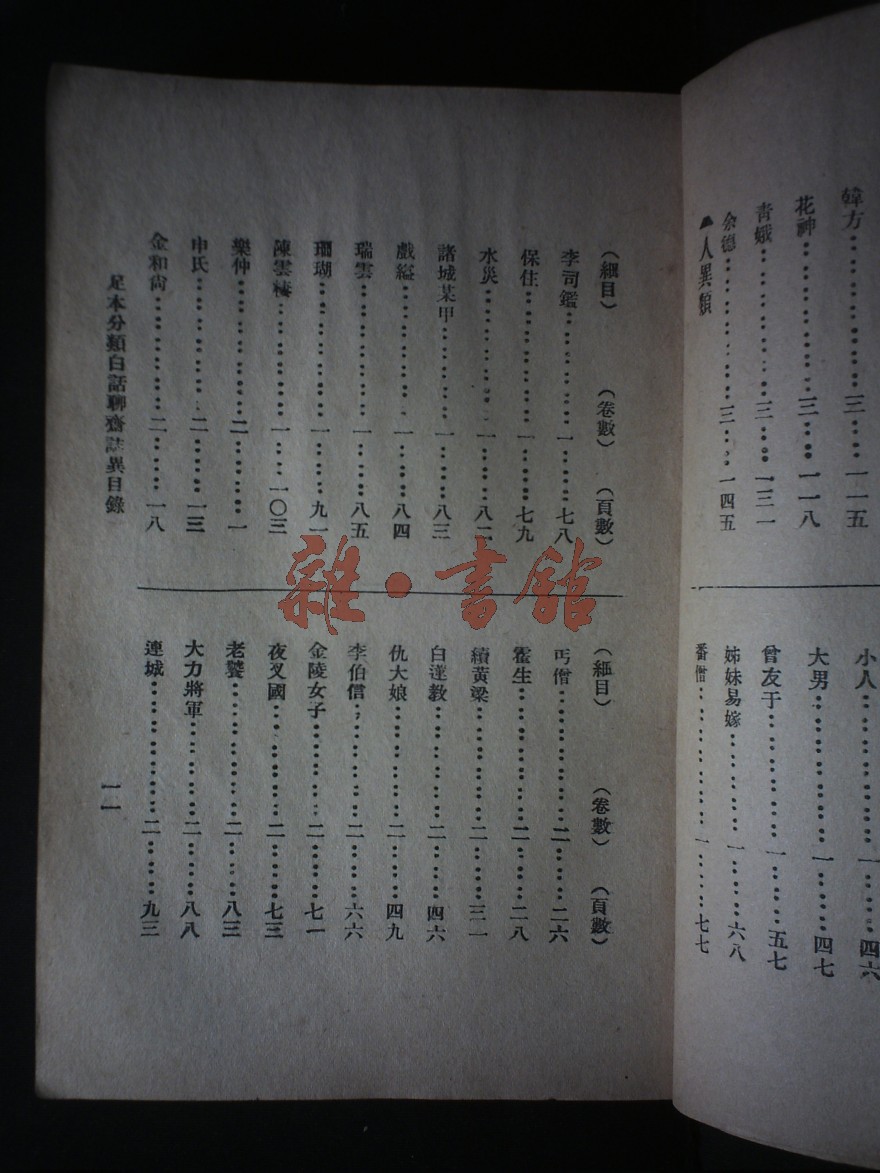 韓方…………三……一一五
花神…………三……一一八
青娥…………三……一三一
余德…………三……一四五
▲人異類
小人…………一……四六
大男…………一……四七
曾友于…………一……五七
姊妹易嫁…………一……六八
番僧…………一……七七
（細目）　（卷數）　（頁數）
李司鑑…………一……七八
保住…………一……七九
水災…………一……八二
諸城某甲…………一……八三
戲縊…………一……八四
瑞雲…………一……八五
珊瑚…………一……九一
陳雲棲…………一……一〇三
樂仲…………二……一
申氏…………二……一三
金和尙…………二……一八
（細目）　（卷數）　（頁數）
丐僧…………二……二六
霍生…………二……二八
續黃梁…………二……三一
白蓮教…………二……四六
仇大娘…………二……四九
李伯信…………二……六六
金陵女子…………二……七一
夜叉國…………二……七三
老饕…………二……八三
大力將軍…………二……八八
連城…………二……九三
足本分類白話聊齋誌異目錄
一一
雜·書館